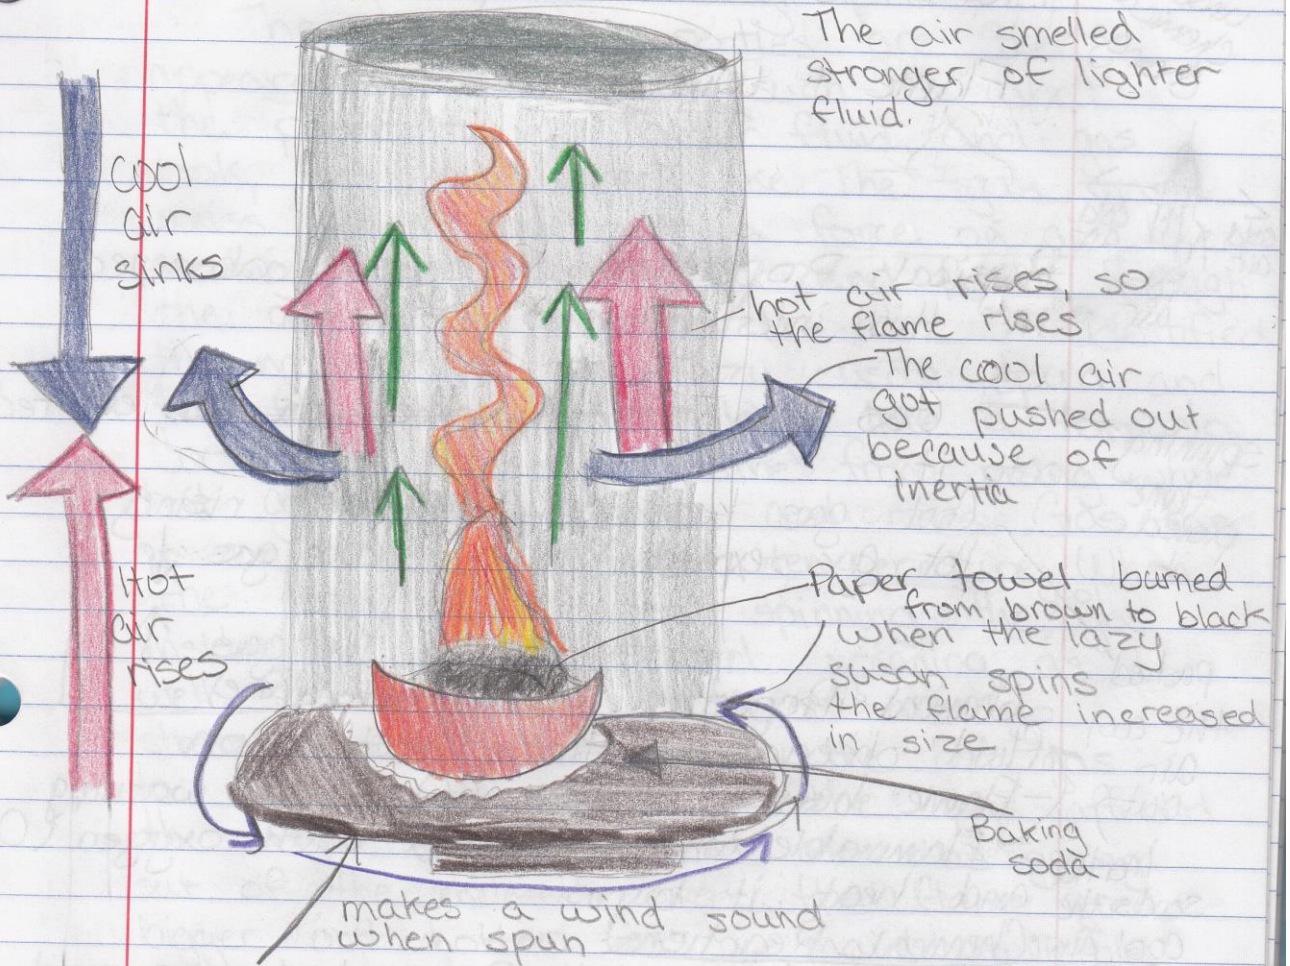 The air smelled
stronger of lighter
fluid.
cool
air
sinks
hot air rises, so
the flame rises
The cool air
got pushed out
because of
inertia
Hot
air
rises
Paper towel burned
from brown to black
when the lazy
susan spins
the flame increased
in size
Baking
soda
makes a wind sound
when spun